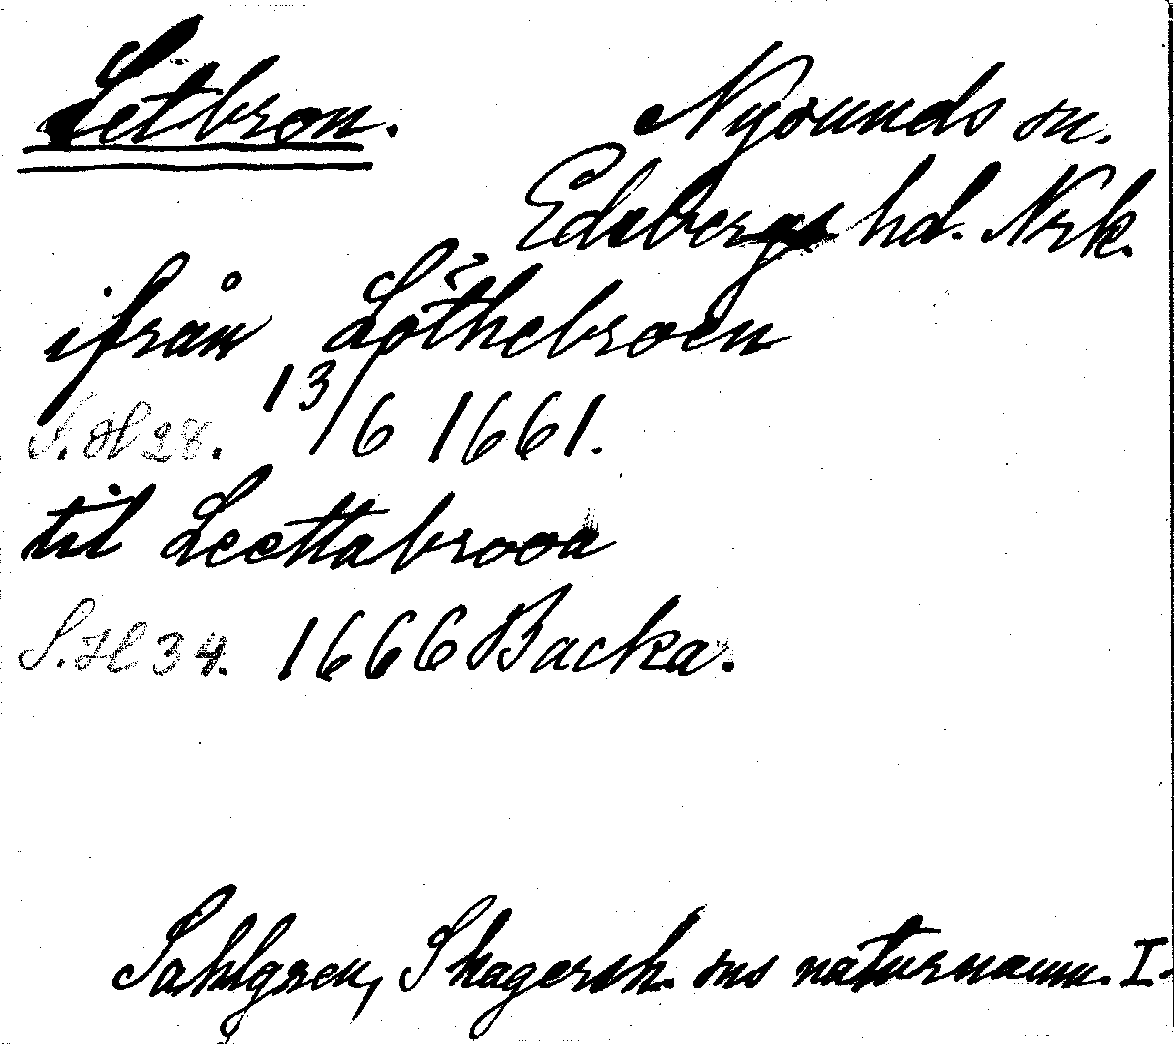 Letbron. Nysunds sn.
Edsbergs hd. Nrk.
ifrån Löthebroen
S. H 28. 13/6 1661.
til Leettabrooa
S. H 34. 1666 Backa.
Sahlgren, Skagersh. sns naturnamn. I.